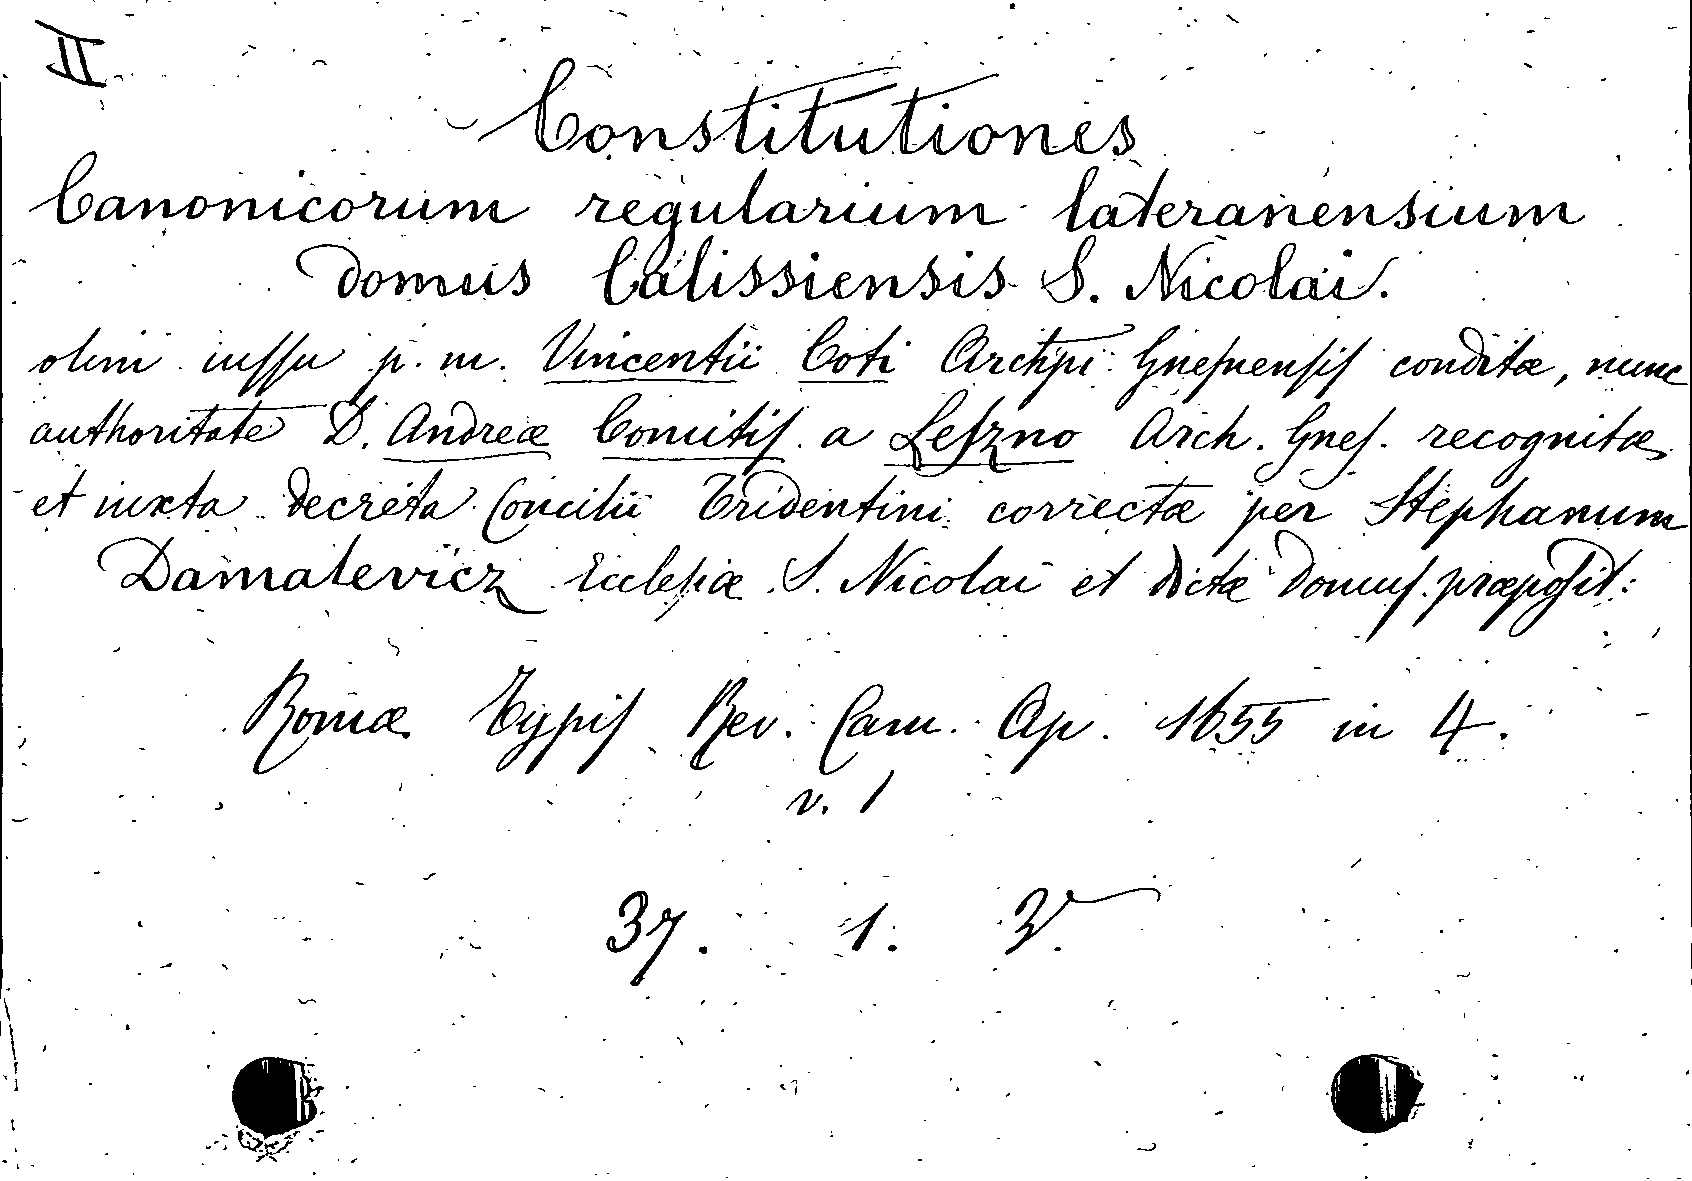 II
Constitutiones
Canonicorum regularium lateranensium
domus Calissiensis S. Nicolai.
olim iussu p. m. Vincentii Coti Archpi Gnesnensis conditæ, nunc
authoritate D. Andreæ Comitis a Leszno Arch. Gnes. recognitæ
et iuxta decreta Concilii Tridentini correctæ per Stephanum
Damalevicz Ecclesiæ S. Nicolai et dictæ domus præposit:
Romæ Typis Rev. Cam. Ap. 1655 in 4.
v. 1
37. 1. 3.